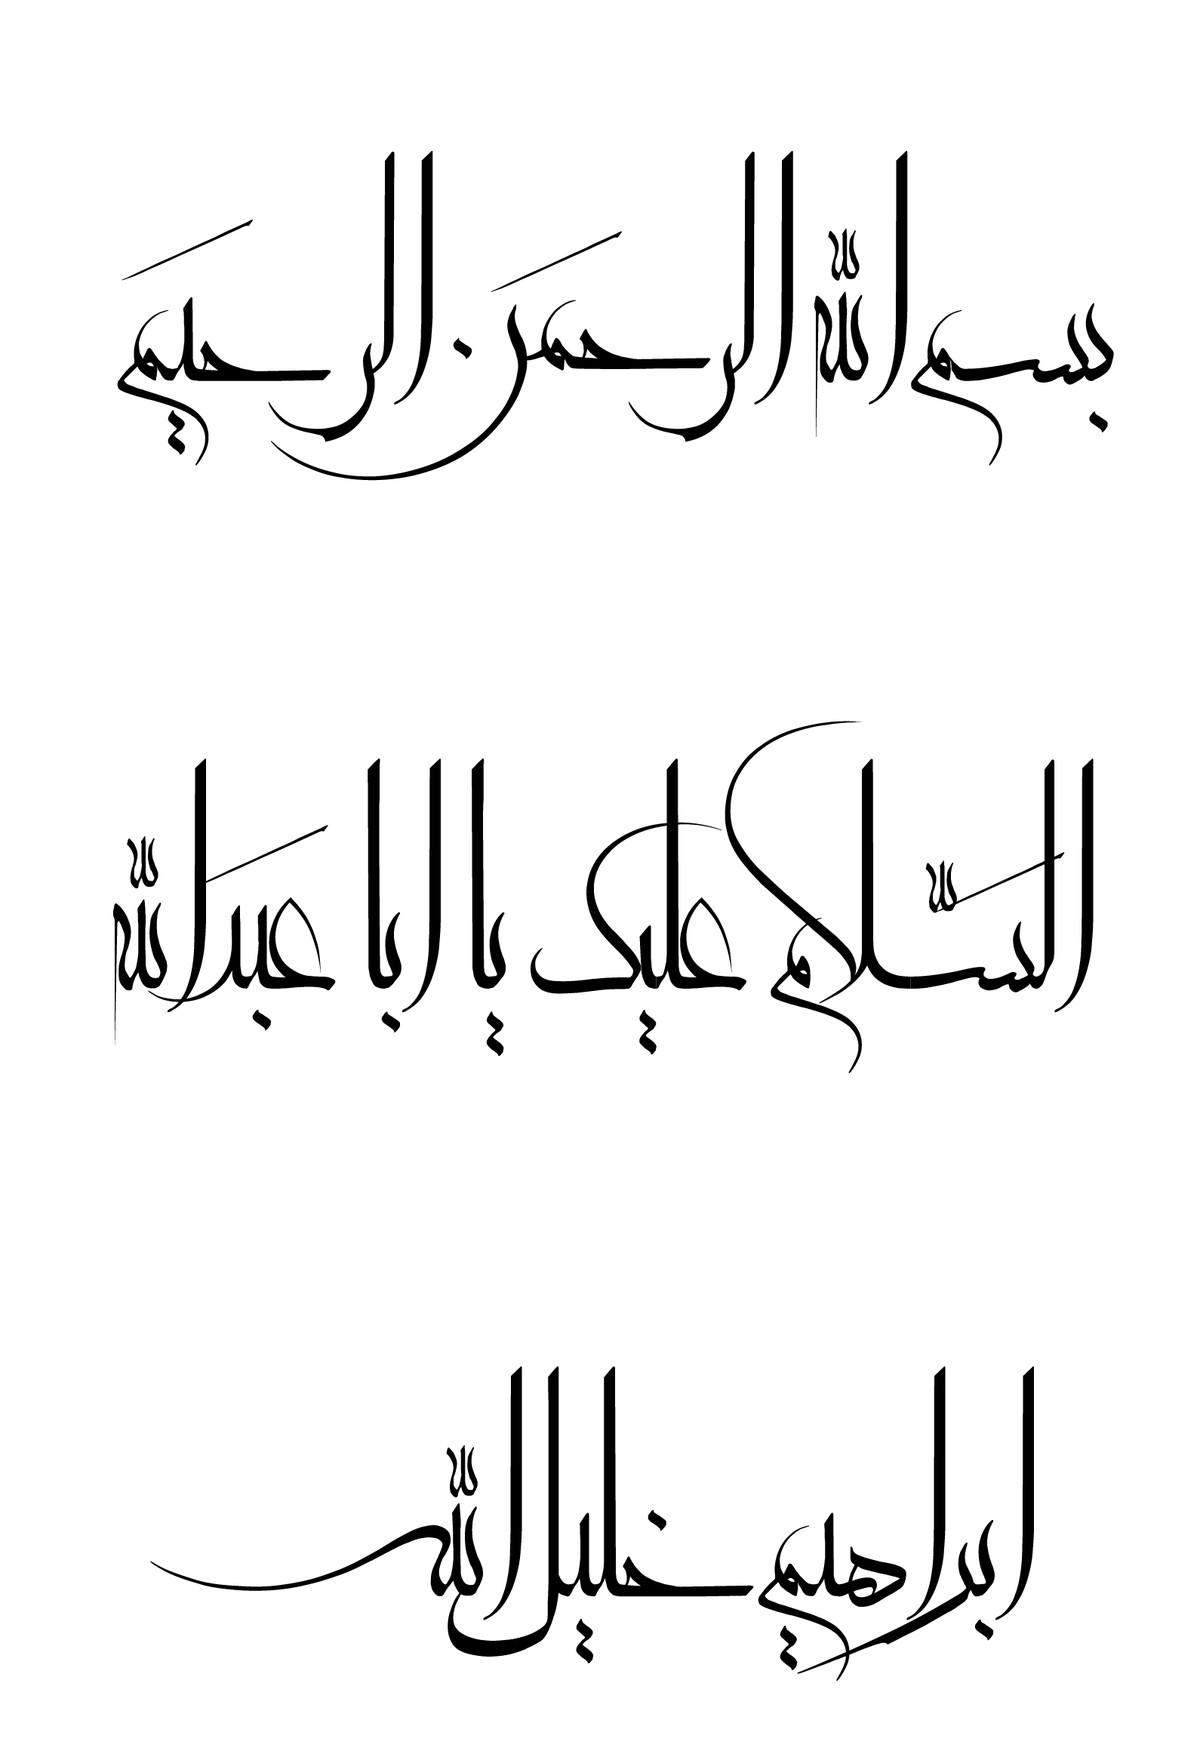 بسم الله الرحمن الرحيم
السّلام عليک يا ابا عبدالله
ابراهيم خليل الله